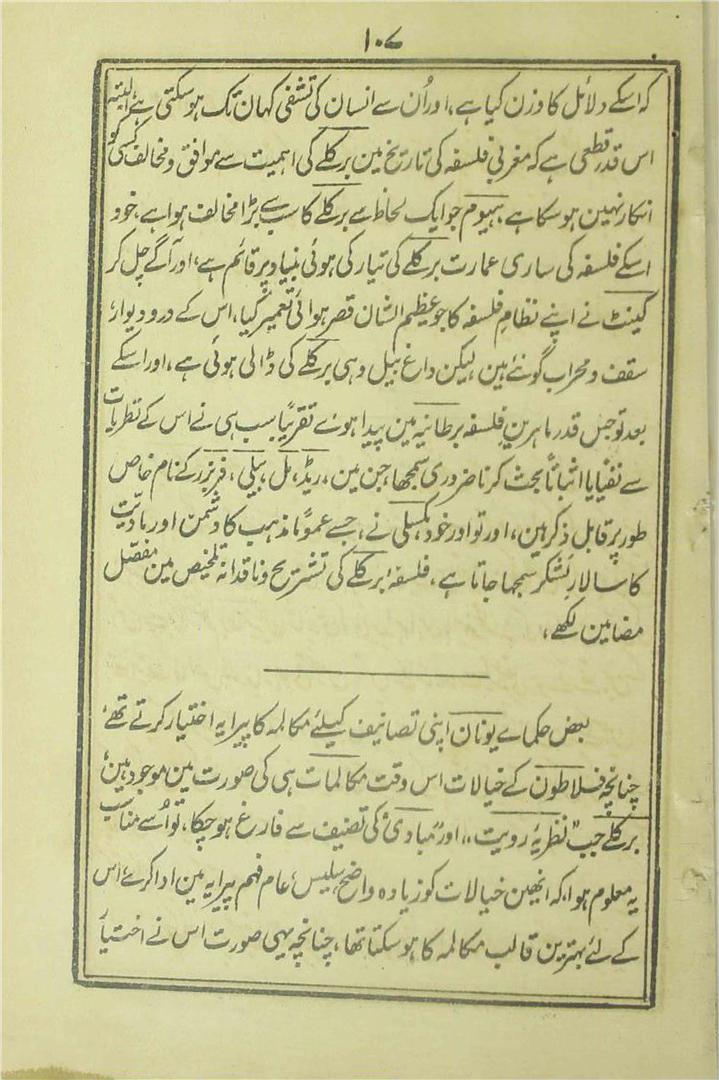 ۱۰۷
کہ اسکے دلائل کا وزن کیا ہے، اور اُن سے انسان کی تشفی کہان تک ہو سکتی ہے، البتہ
اس قدر قطعی ہے کہ مغربی فلسفہ کی تاریخ مین برکلے کی اہمیت سے موافق و مخالف کسی کو
انکار نہین ہو سکا ہے، ہیوم جو ایک لحاظ سے برکلے کا سب سے بڑا مخالف ہوا ہے، خود
اسکے فلسفہ کی ساری عمارت برکلے کی تیار کی ہوئی بنیاد پر قائم ہے، اور آگے چل کر
کینٹ نے اپنے نظام فلسفہ کا جو عظیم الشان قصر ہوائی تعمیر کیا، اس کے در و دیوار،
سقف و محراب گو نئے ہین لیکن داغ بیل وہی برکلے کی ڈالی ہوئی ہے، اور اسکے
بعد تو جس قدر ماہرین فلسفہ برطانیہ مین پیدا ہوے تقریبًا سب ہی نے اس کے نظریات
سے نفیًا یا اثباتًا بحث کرنا ضروری سمجھا، جن مین، ریڈ، مل، بیلی، فریزر کے نام خاص
طور پر قابل ذکر ہین، اور تو اور خود ہکسلی نے، جسے عمومًا مذہب کا دشمن اور مادیت
کا سالار لشکر سمجھا جاتا ہے، فلسفۂ برکلے کی تشریح و ناقدانہ تلخیص مین مفصل
مضامین لکھے،
بعض حکماے یونان اپنی تصانیف کیلئے مکالمہ کا پیرایہ اختیار کرتے تھے،
چنانچہ فلاطون کے خیالات اس وقت مکالمات ہی کی صورت مین موجود ہین،
برکلے جب "نظریۂ رویت"، اور "مبادی" کی تصنیف سے فارغ ہو چکا، تو اُسے مناسب
یہ معلوم ہوا، کہ انھین خیالات کو زیادہ واضح سلیس، عام فہم پیرایہ مین ادا کرے، اس
کے لئے بہترین قالب مکالمہ کا ہو سکتا تھا، چنانچہ یہی صورت اس نے اختیار